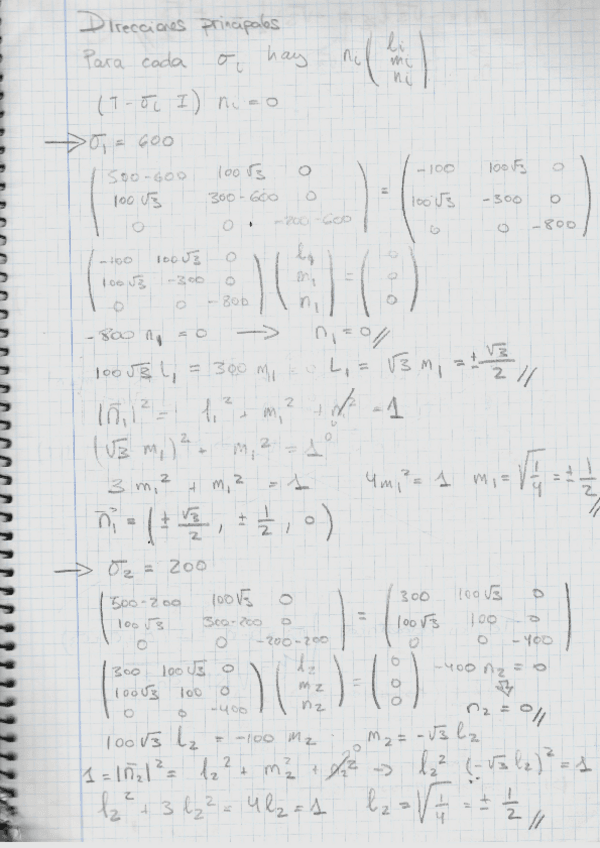 Direcciones principales
Para cada σi hay ni (li mi ni)
(T - σi I) ni = 0
→ σ1 = 600
(500-600 100√3 0; 100√3 300-600 0; 0 0 -200-600) = (-100 100√3 0; 100√3 -300 0; 0 0 -800)
(-100 100√3 0; 100√3 -300 0; 0 0 -800) (l1 m1 n1) = (0 0 0)
-800 n1 = 0 → n1 = 0//
100√3 l1 = 300 m1 L1 = √3 m1 = ± √3/2 //
|n̄1|² = l1² + m1² + n² = 1
0
(√3 m1)² + m1² = 1
3 m1² + m1² = 1 4m1² = 1 m1 = √1/4 = ± 1/2 //
n̄1 = (± √3/2, ± 1/2, 0)
→ σ2 = 200
(500-200 100√3 0; 100√3 300-200 0; 0 0 -200-200) = (300 100√3 0; 100√3 100 0; 0 0 -400)
(300 100√3 0; 100√3 100 0; 0 0 -400) (l2 m2 n2) = (0 0 0) -400 n2 = 0
⇓
n2 = 0//
100√3 l2 = -100 m2 m2 = -√3 l2
1 = |n̄2|² = l2² + m2² + n2² 0 → l2² (-√3 l2)² = 1
l2² + 3 l2² = 4l2 = 1 l2 = √1/4 = ± 1/2 //